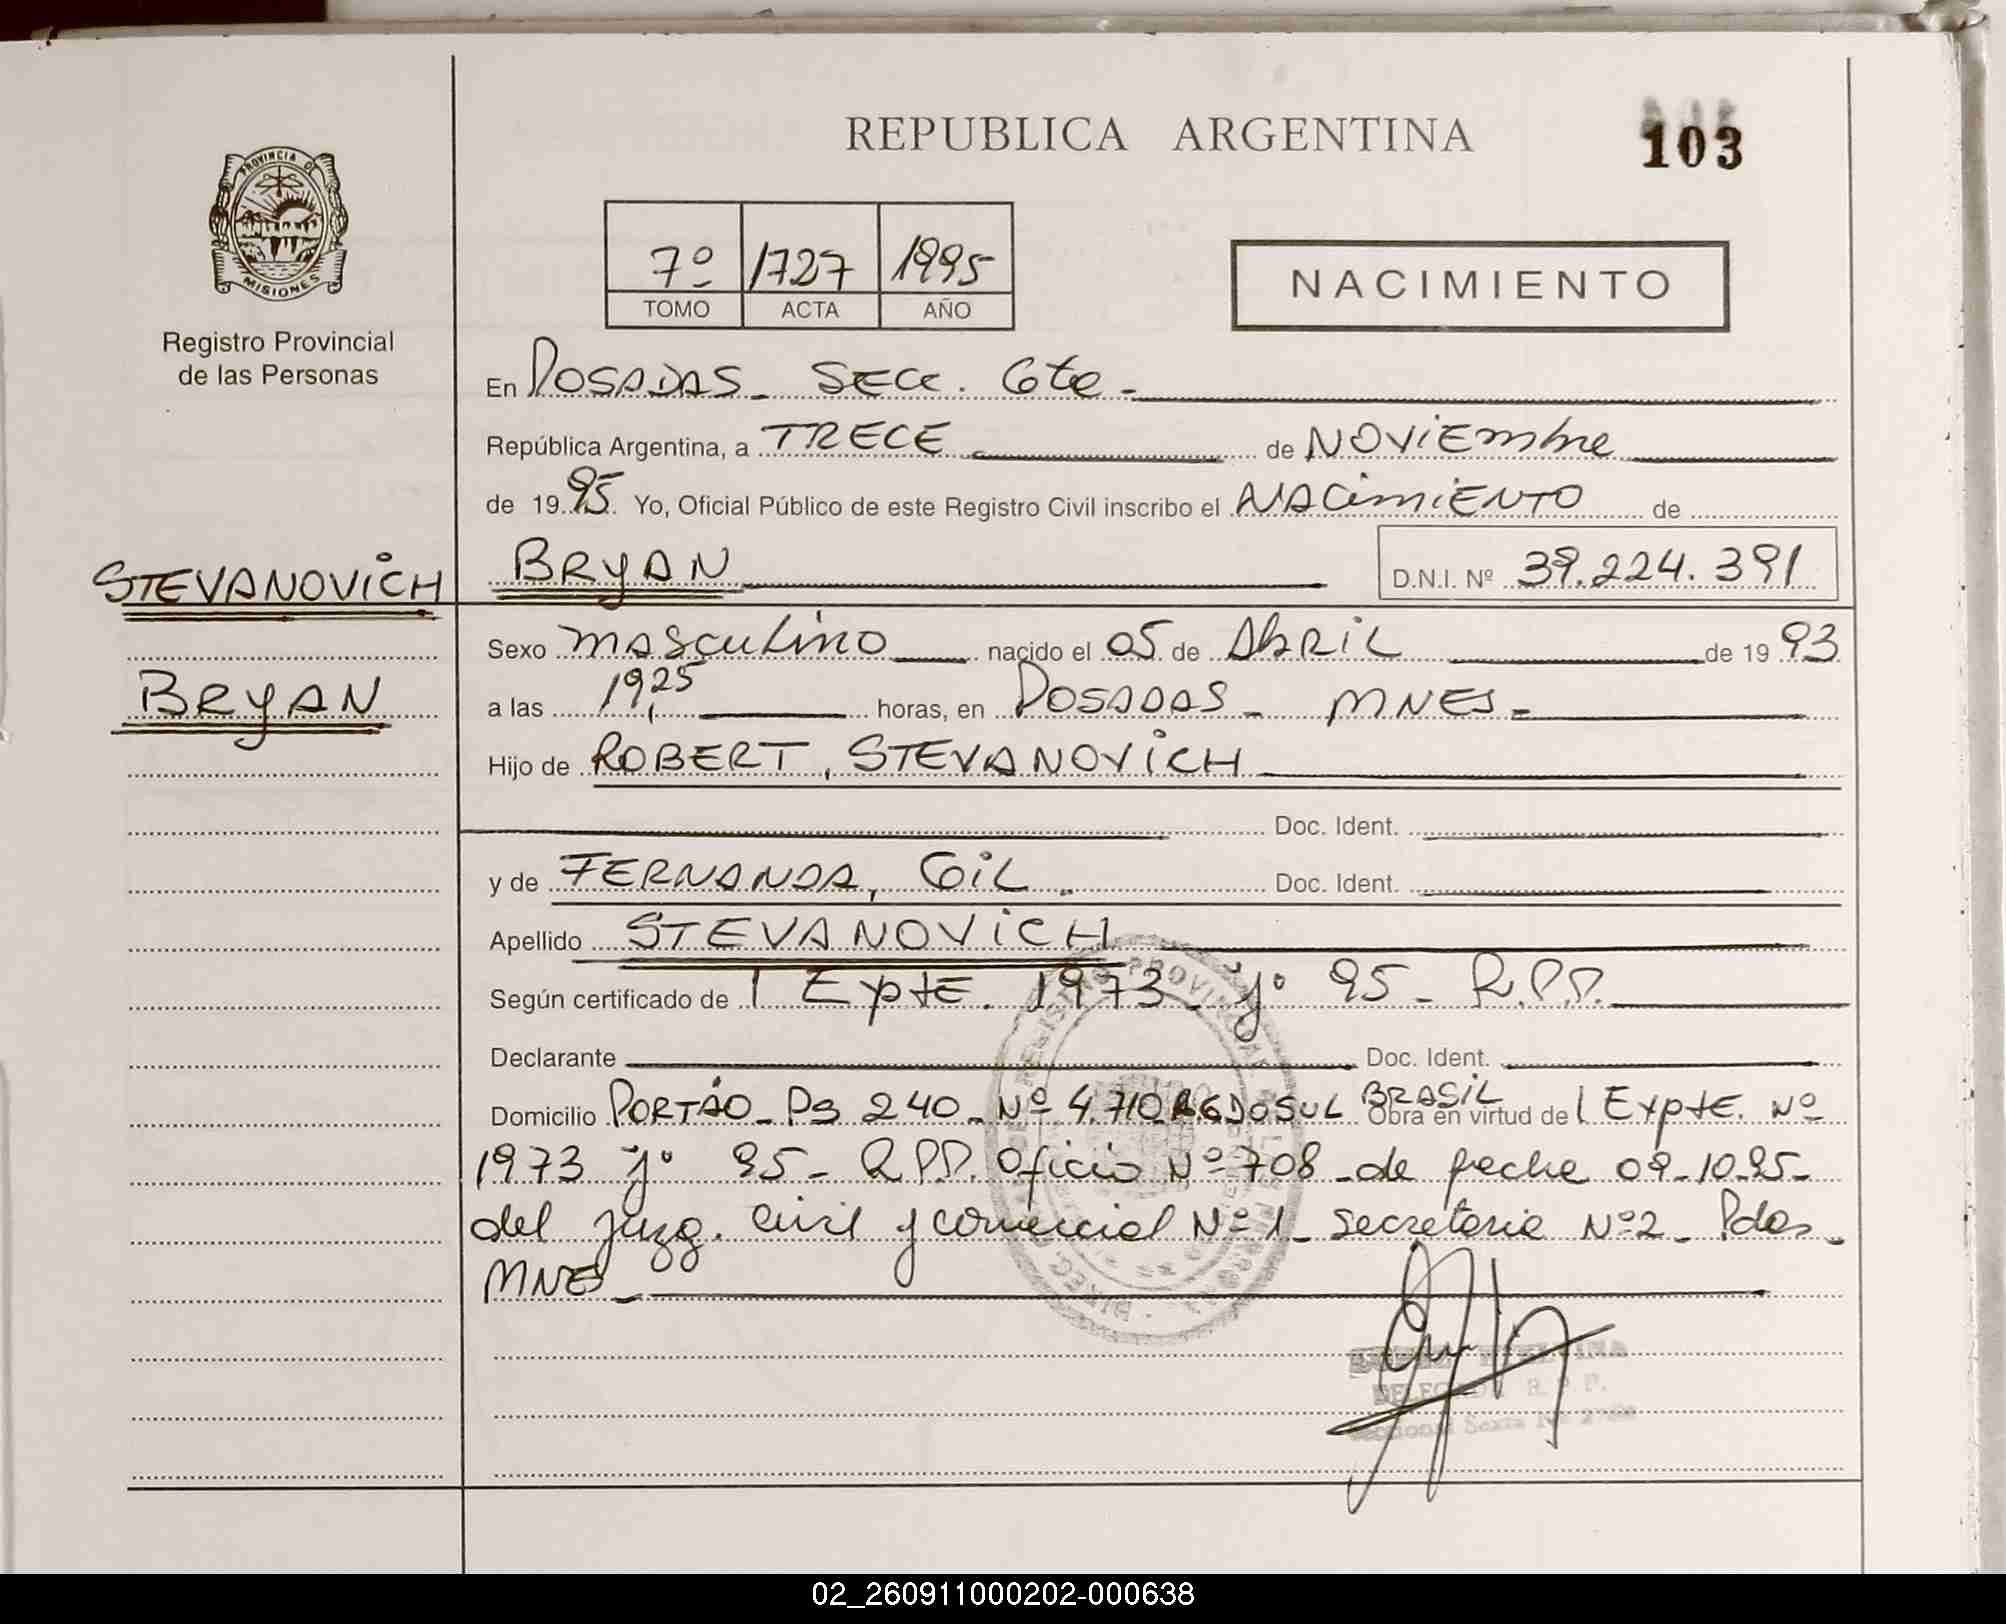 REPUBLICA ARGENTINA
103
PROVINCIA DE
MISIONES
Registro Provincial
de las Personas
7º 1727 1995
TOMO ACTA AÑO
NACIMIENTO
En POSADAS - SECC. 6ta -
República Argentina, a TRECE de NOViEmbre
de 19 95 Yo, Oficial Público de este Registro Civil inscribo el NACimiENTO de
STEVANOViCH
BRYAN
BRYAN D.N.I. Nº 39.224.391
Sexo masculino nacido el 05 de AbRiL de 19 93
a las 19,25 horas, en POSADAS - MNES -
Hijo de ROBERT, STEVANOViCH
Doc. Ident.
y de FERNANDA, GiL. Doc. Ident.
Apellido STEVANOViCH
Según certificado de 1 ExptE. 1973 95 - R.P.P.
Declarante Doc. Ident.
Domicilio PORTÃO - 240 - Nº 4.710 R.G DO SUL BRASiL Obra en virtud de 1 ExptE. Nº
1973 95 - R.P.P. Oficio Nº 708 - de fecha 09-10-95-
del juzg. civil y comercial Nº 1 - secretaria Nº 2 - Pdas -
MNES -
DELEGADA R.P.P.
02_260911000202-000638